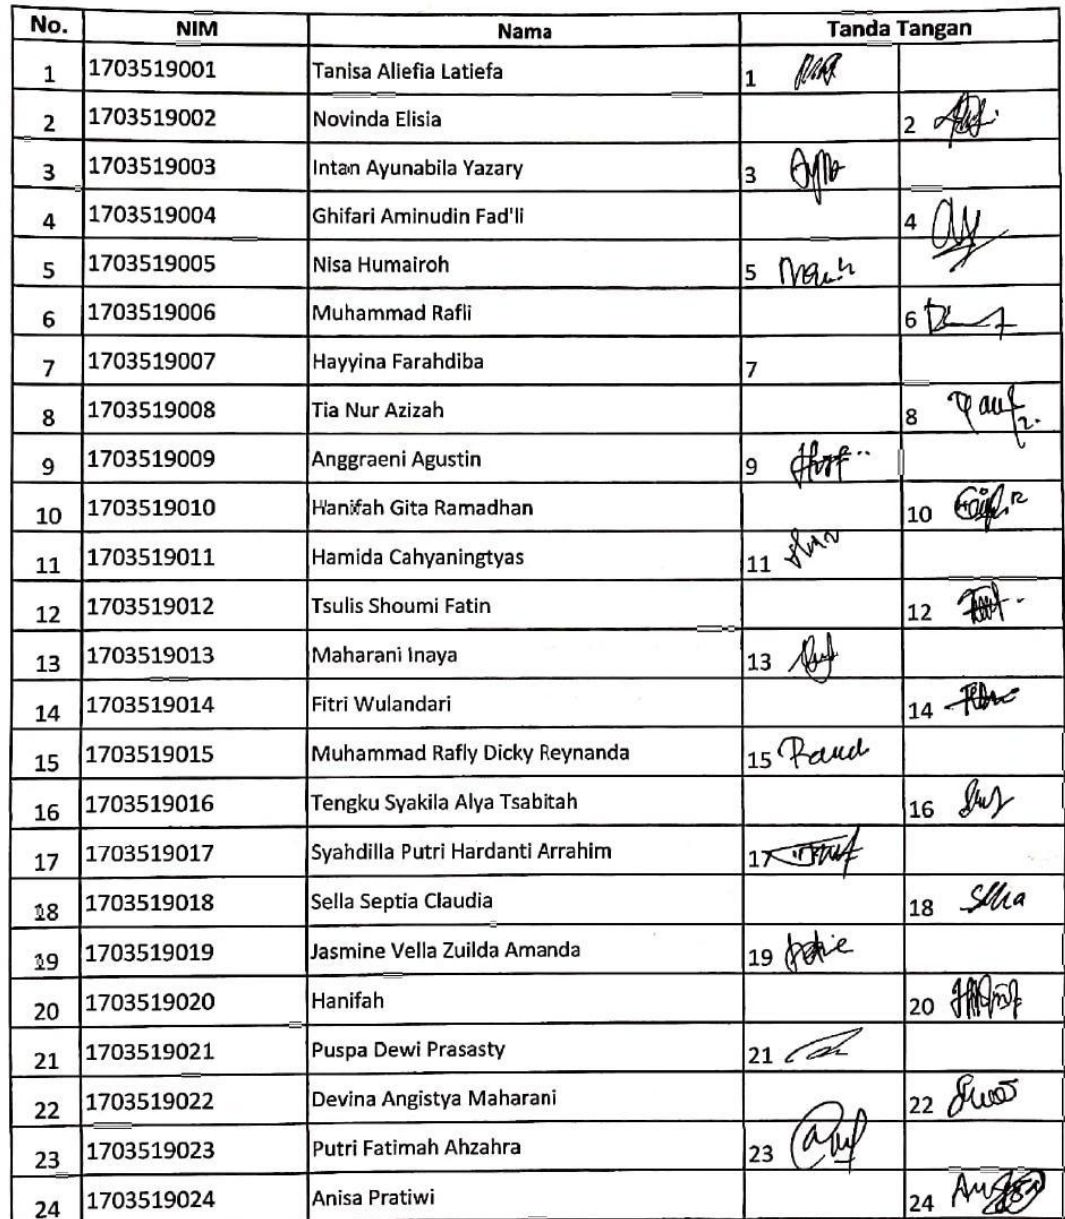 No. NIM Nama Tanda Tangan
1 1703519001 Tanisa Aliefia Latiefa 1
2 1703519002 Novinda Elisia 2
3 1703519003 Intan Ayunabila Yazary 3
4 1703519004 Ghifari Aminudin Fad'li 4
5 1703519005 Nisa Humairoh 5
6 1703519006 Muhammad Rafli 6
7 1703519007 Hayyina Farahdiba 7
8 1703519008 Tia Nur Azizah 8
9 1703519009 Anggraeni Agustin 9
10 1703519010 Hanifah Gita Ramadhan 10
11 1703519011 Hamida Cahyaningtyas 11
12 1703519012 Tsulis Shoumi Fatin 12
13 1703519013 Maharani Inaya 13
14 1703519014 Fitri Wulandari 14
15 1703519015 Muhammad Rafly Dicky Reynanda 15
16 1703519016 Tengku Syakila Alya Tsabitah 16
17 1703519017 Syahdilla Putri Hardanti Arrahim 17
18 1703519018 Sella Septia Claudia 18
19 1703519019 Jasmine Vella Zuilda Amanda 19
20 1703519020 Hanifah 20
21 1703519021 Puspa Dewi Prasasty 21
22 1703519022 Devina Angistya Maharani 22
23 1703519023 Putri Fatimah Ahzahra 23
24 1703519024 Anisa Pratiwi 24